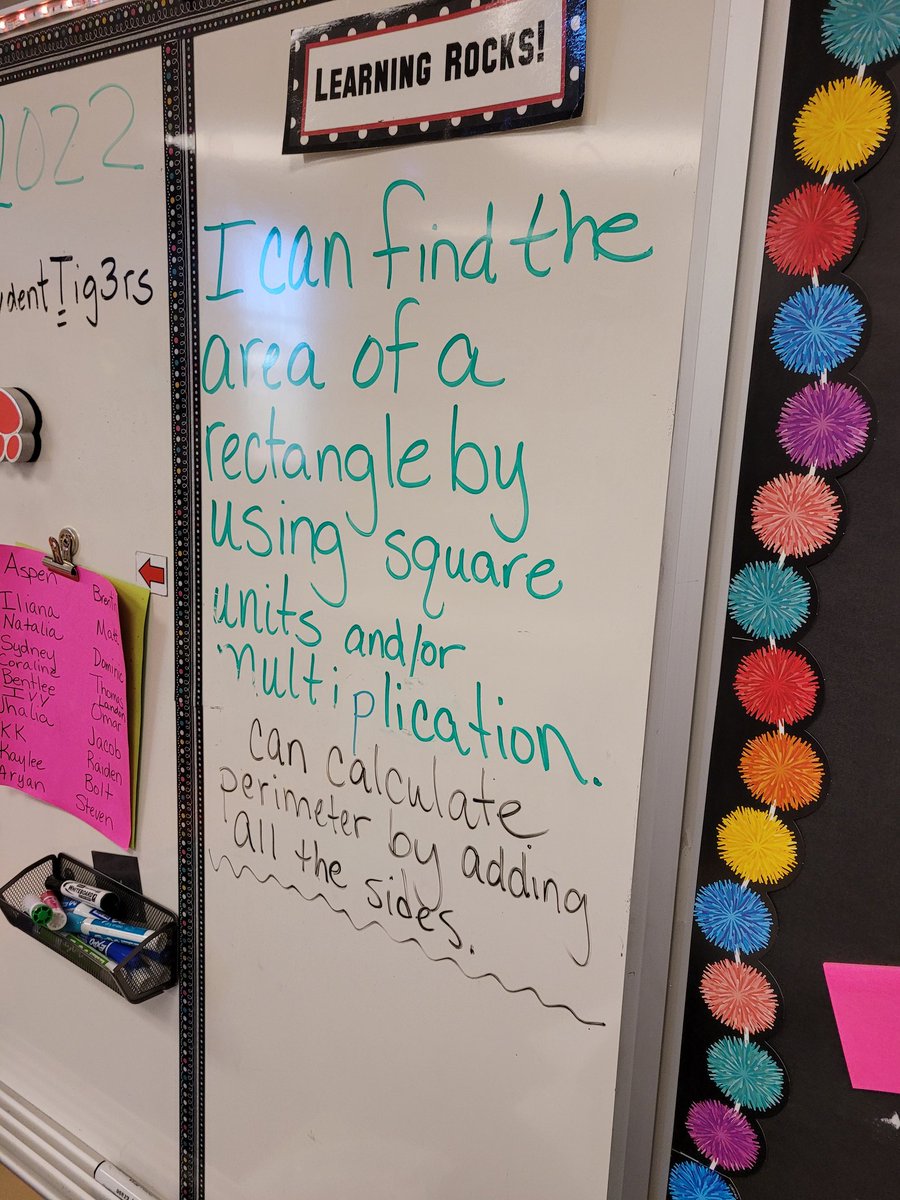 LEARNING ROCKS!
2022
udent Tig3rs
I can find the
area of a
rectangle by
using square
units and/or
multiplication.
can calculate
perimeter by adding
all the sides.
Aspen
Iliana
Natalia
Sydney
Coraline
Bentlee
Ivy
Shalia
KK
Kaylee
Aryan
Matt
Dominic
Thomas
Landon
Omar
Jacob
Raiden
Bolt
Steven
WHITEBOARD
EXPO